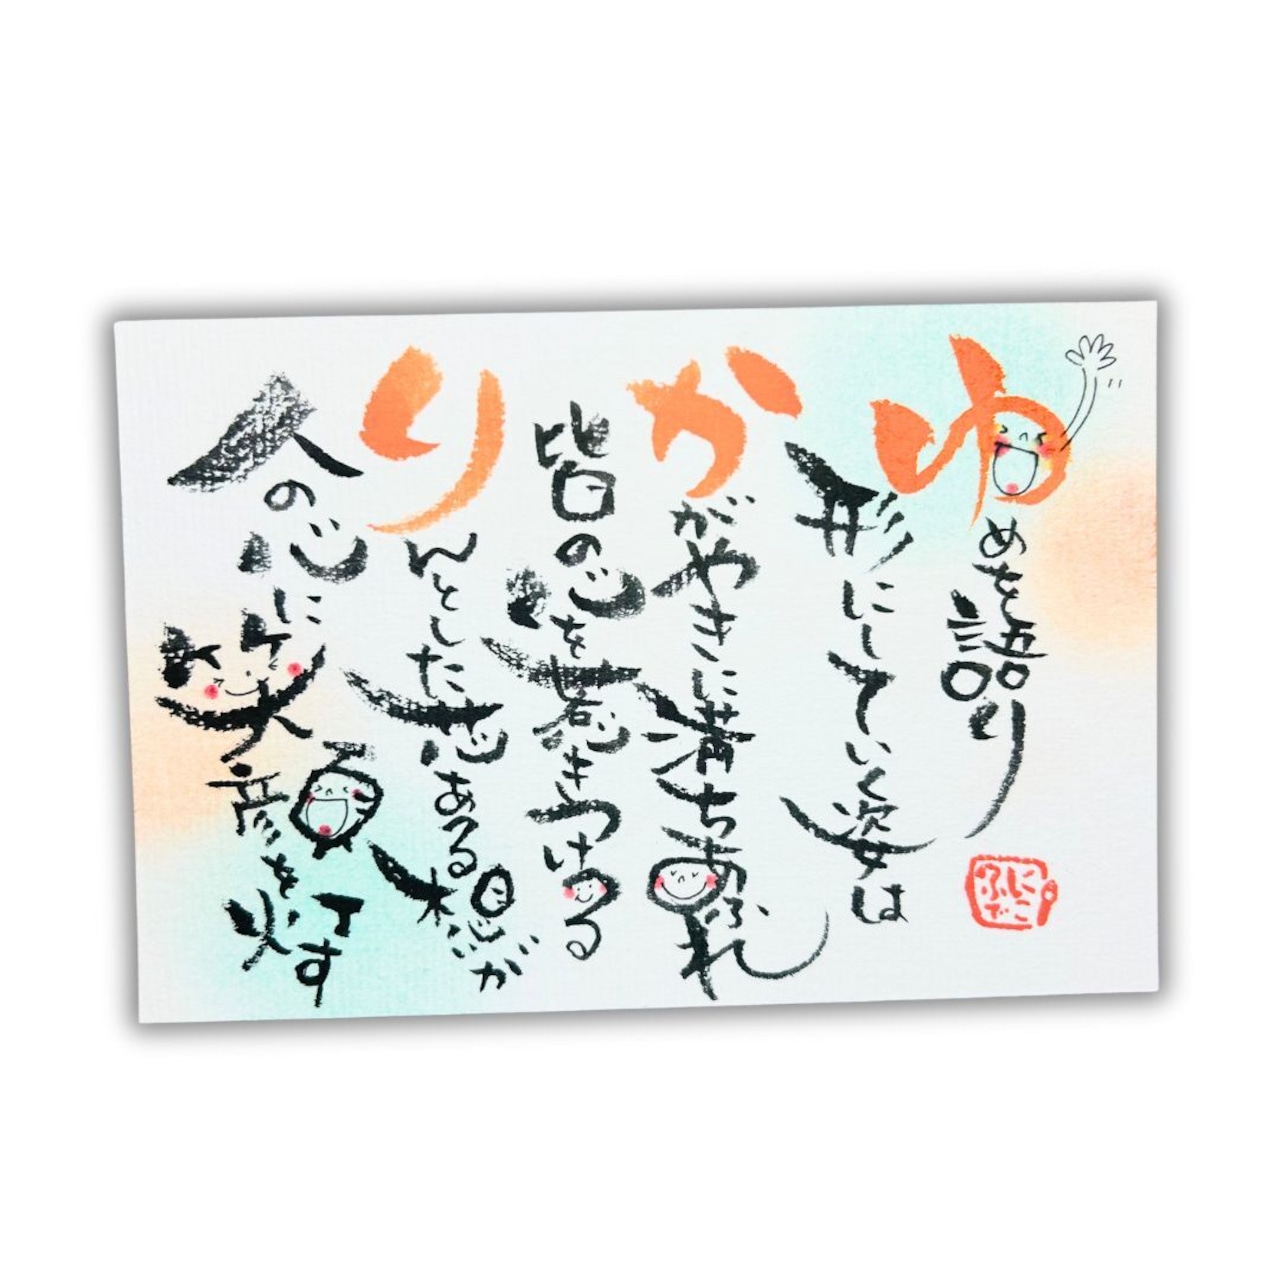 ゆめを語り
形にしていく姿は
かがやきに満ちあふれ
皆の心を惹きつける
りんとした芯ある想いが
人の心に笑顔を灯す
にこふで